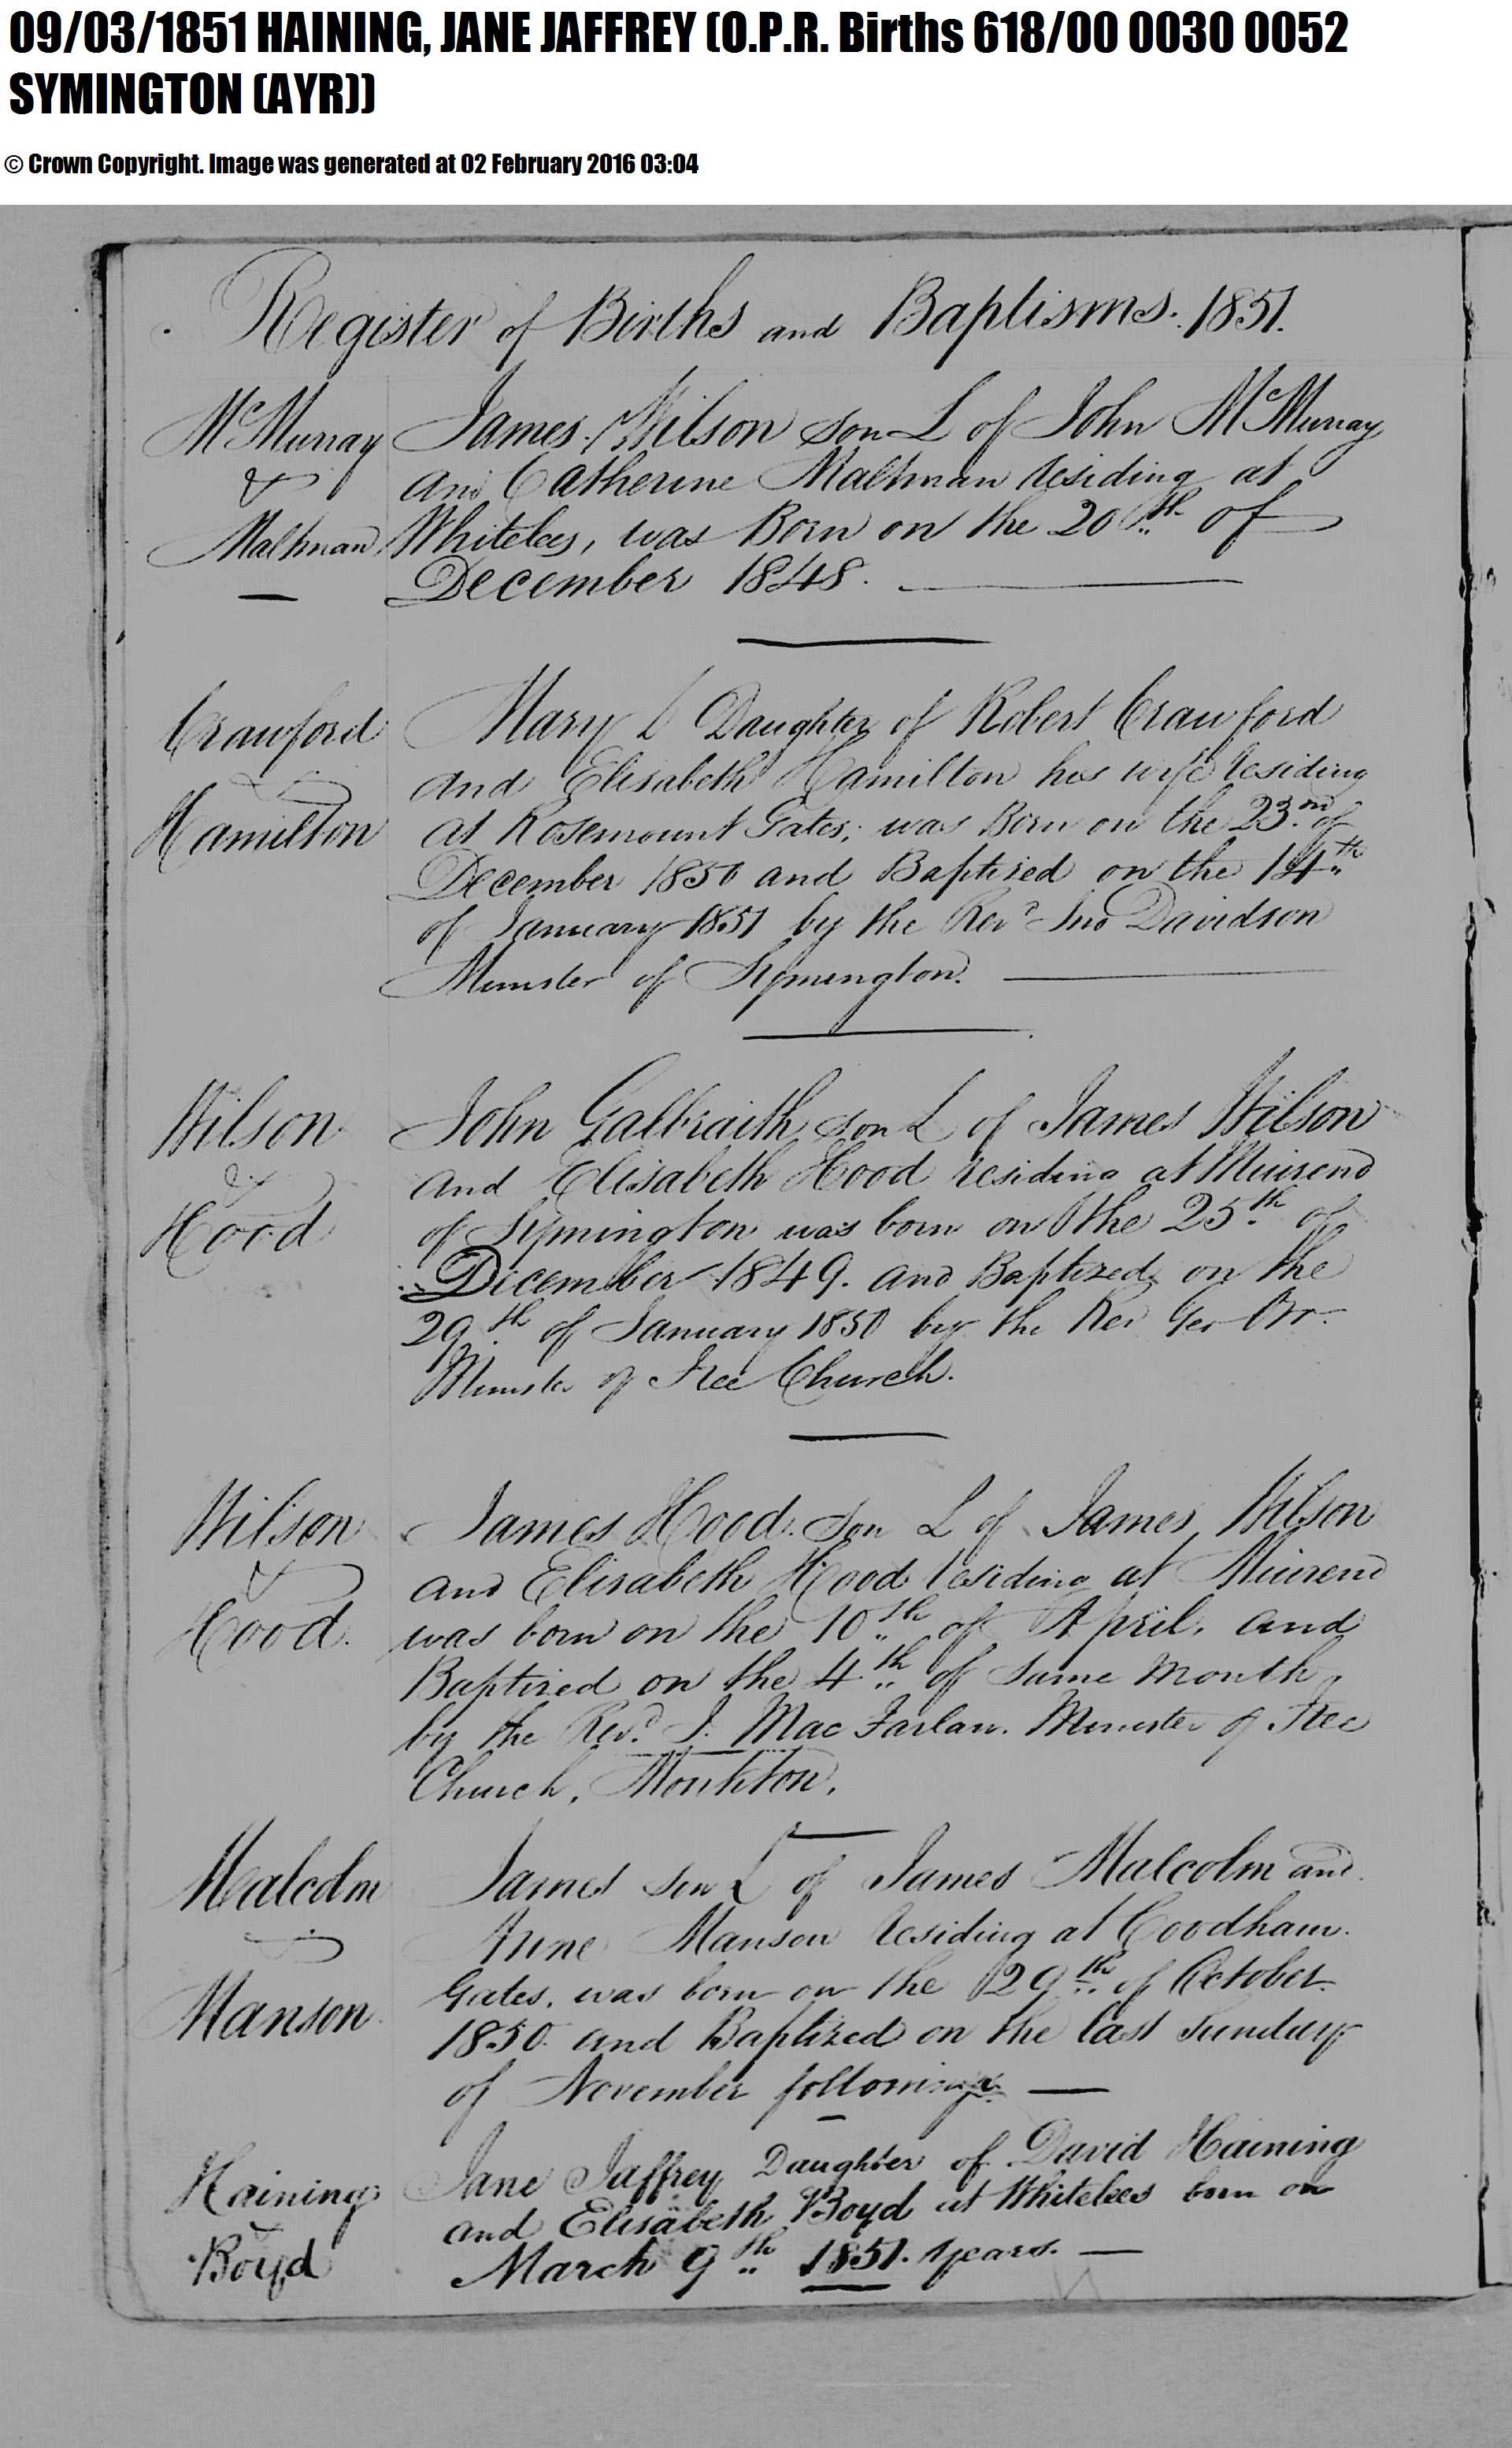 09/03/1851 HAINING, JANE JAFFREY (O.P.R. Births 618/00 0030 0052
SYMINGTON (AYR))
© Crown Copyright. Image was generated at 02 February 2016 03:04
Register of Births and Baptisms. 1851.
McMurray
&
Maltman
James Wilson son L of John McMurray
and Catherine Maltman residing at
Whitelees, was Born on the 20th of
December 1848.
Crawford
&
Hamilton
Mary L Daughter of Robert Crawford
and Elisabeth Hamilton his wife residing
at Rosemount Gates, was Born on the 23rd of
December 1850 and Baptized on the 14th
of January 1851 by the Revd Jno Davidson
Minister of Symington.
Wilson
&
Hood
John Galbraith son L of James Wilson
and Elisabeth Hood residing at Muirend
of Symington was born on the 25th of
December 1849. and Baptized on the
29th of January 1850 by the Rev Geo Orr
Minister of Free Church.
Wilson
&
Hood.
James Hood. Son L of James Wilson
and Elisabeth Hood residing at Muirend
was born on the 10th of April, and
Baptized on the 4th of same month
by the Revd. J. MacFarlan. Minister of Free
Church, Monkton.
Malcolm
&
Manson
James son L of James Malcolm and
Anne Manson residing at Coodham
Gates, was born on the 29th of October
1850. and Baptized on the last Sunday
of November following.
Haining
&
Boyd
Jane Jaffrey Daughter of David Haining
and Elisabeth Boyd at Whitelees born on
March 9th 1851. years.